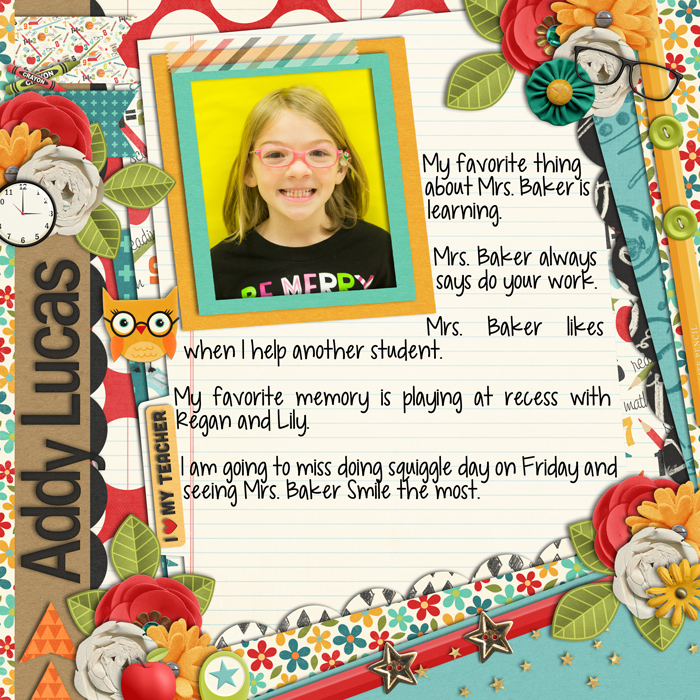 CRAYON
My favorite thing
about Mrs. Baker is
learning.
Mrs. Baker always
says do your work.
Mrs. Baker likes
when I help another student.
My favorite memory is playing at recess with
Regan and Lily.
I am going to miss doing squiggle day on Friday and
seeing Mrs. Baker Smile the most.
BE MERRY
Addy Lucas
I MY TEACHER
12
3
6
9
math
PENCIL